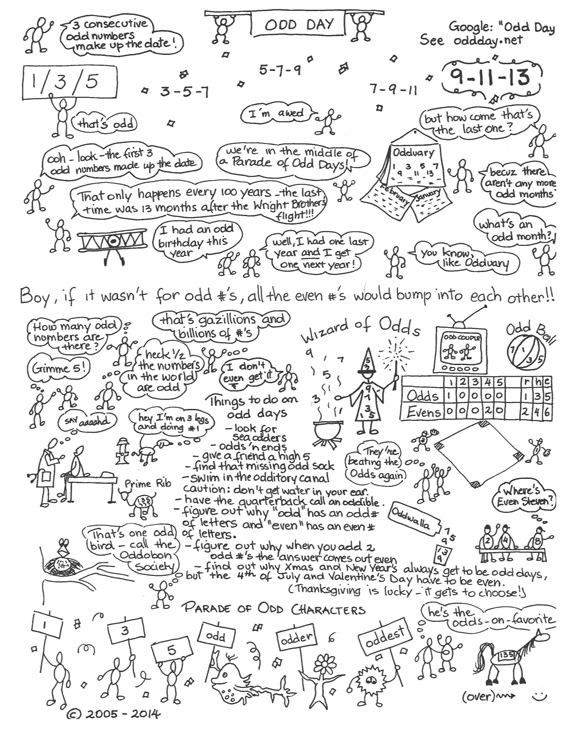 3 consecutive
odd numbers
make up the date!
ODD DAY
Google: "Odd Day
See oddday.net
1/3/5
3-5-7
5-7-9
7-9-11
9-11-13
that's odd
I'm awed
but how come that's
the last one?
ooh - look - the first 3
odd numbers made up the date
we're in the middle of
a Parade of Odd Days
Odduary
1 3 5 7
9 11 13
February
January
becuz there
aren't any more
odd months
That only happens every 100 years - the last
time was 13 months after the Wright Brothers
flight!!!
what's an
odd month?
I had an odd
birthday this
year
well, I had one last
year and I get
one next year!
you know,
like Odduary
Boy, if it wasn't for odd #'s, all the even #'s would bump into each other!!
How many odd
numbers are
there?
that's gazillions and
billions of #'s
Wizard of Odds
ODD COUPLE
Odd Ball
1 3 5
Gimme 5!
heck 1/2
the numbers
in the world
are odd
I don't
even get it
1 2 3 4 5 r h e
Odds 1 0 0 0 0 1 3 5
Evens 0 0 0 2 0 2 4 6
say aaaahd
hey I'm on 3 legs
and doing #1
Things to do on
odd days
- look for
sea odders
- odds 'n ends
- give a friend a high 5
- find that missing odd sock
- swim in the odditory canal
caution: don't get water in your ear.
- have the quarterback call an oddible.
- figure out why "odd" has an odd #
of letters and "even" has an even #
of letters.
- figure out why when you add 2
odd #'s the answer comes out even
- find out why Xmas and New Year's always get to be odd days,
but the 4th of July and Valentine's Day have to be even.
(Thanksgiving is lucky - it gets to choose!)
Prime Rib
They're
beating the
Odds again
Oddwalla
Where's
Even Steven?
2 4 8
That's one odd
bird - call the
Oddobon
Society
PARADE OF ODD CHARACTERS
he's the
odds-on-favorite
1
3
5
odd
odder
oddest
135
(over)
© 2005 - 2014